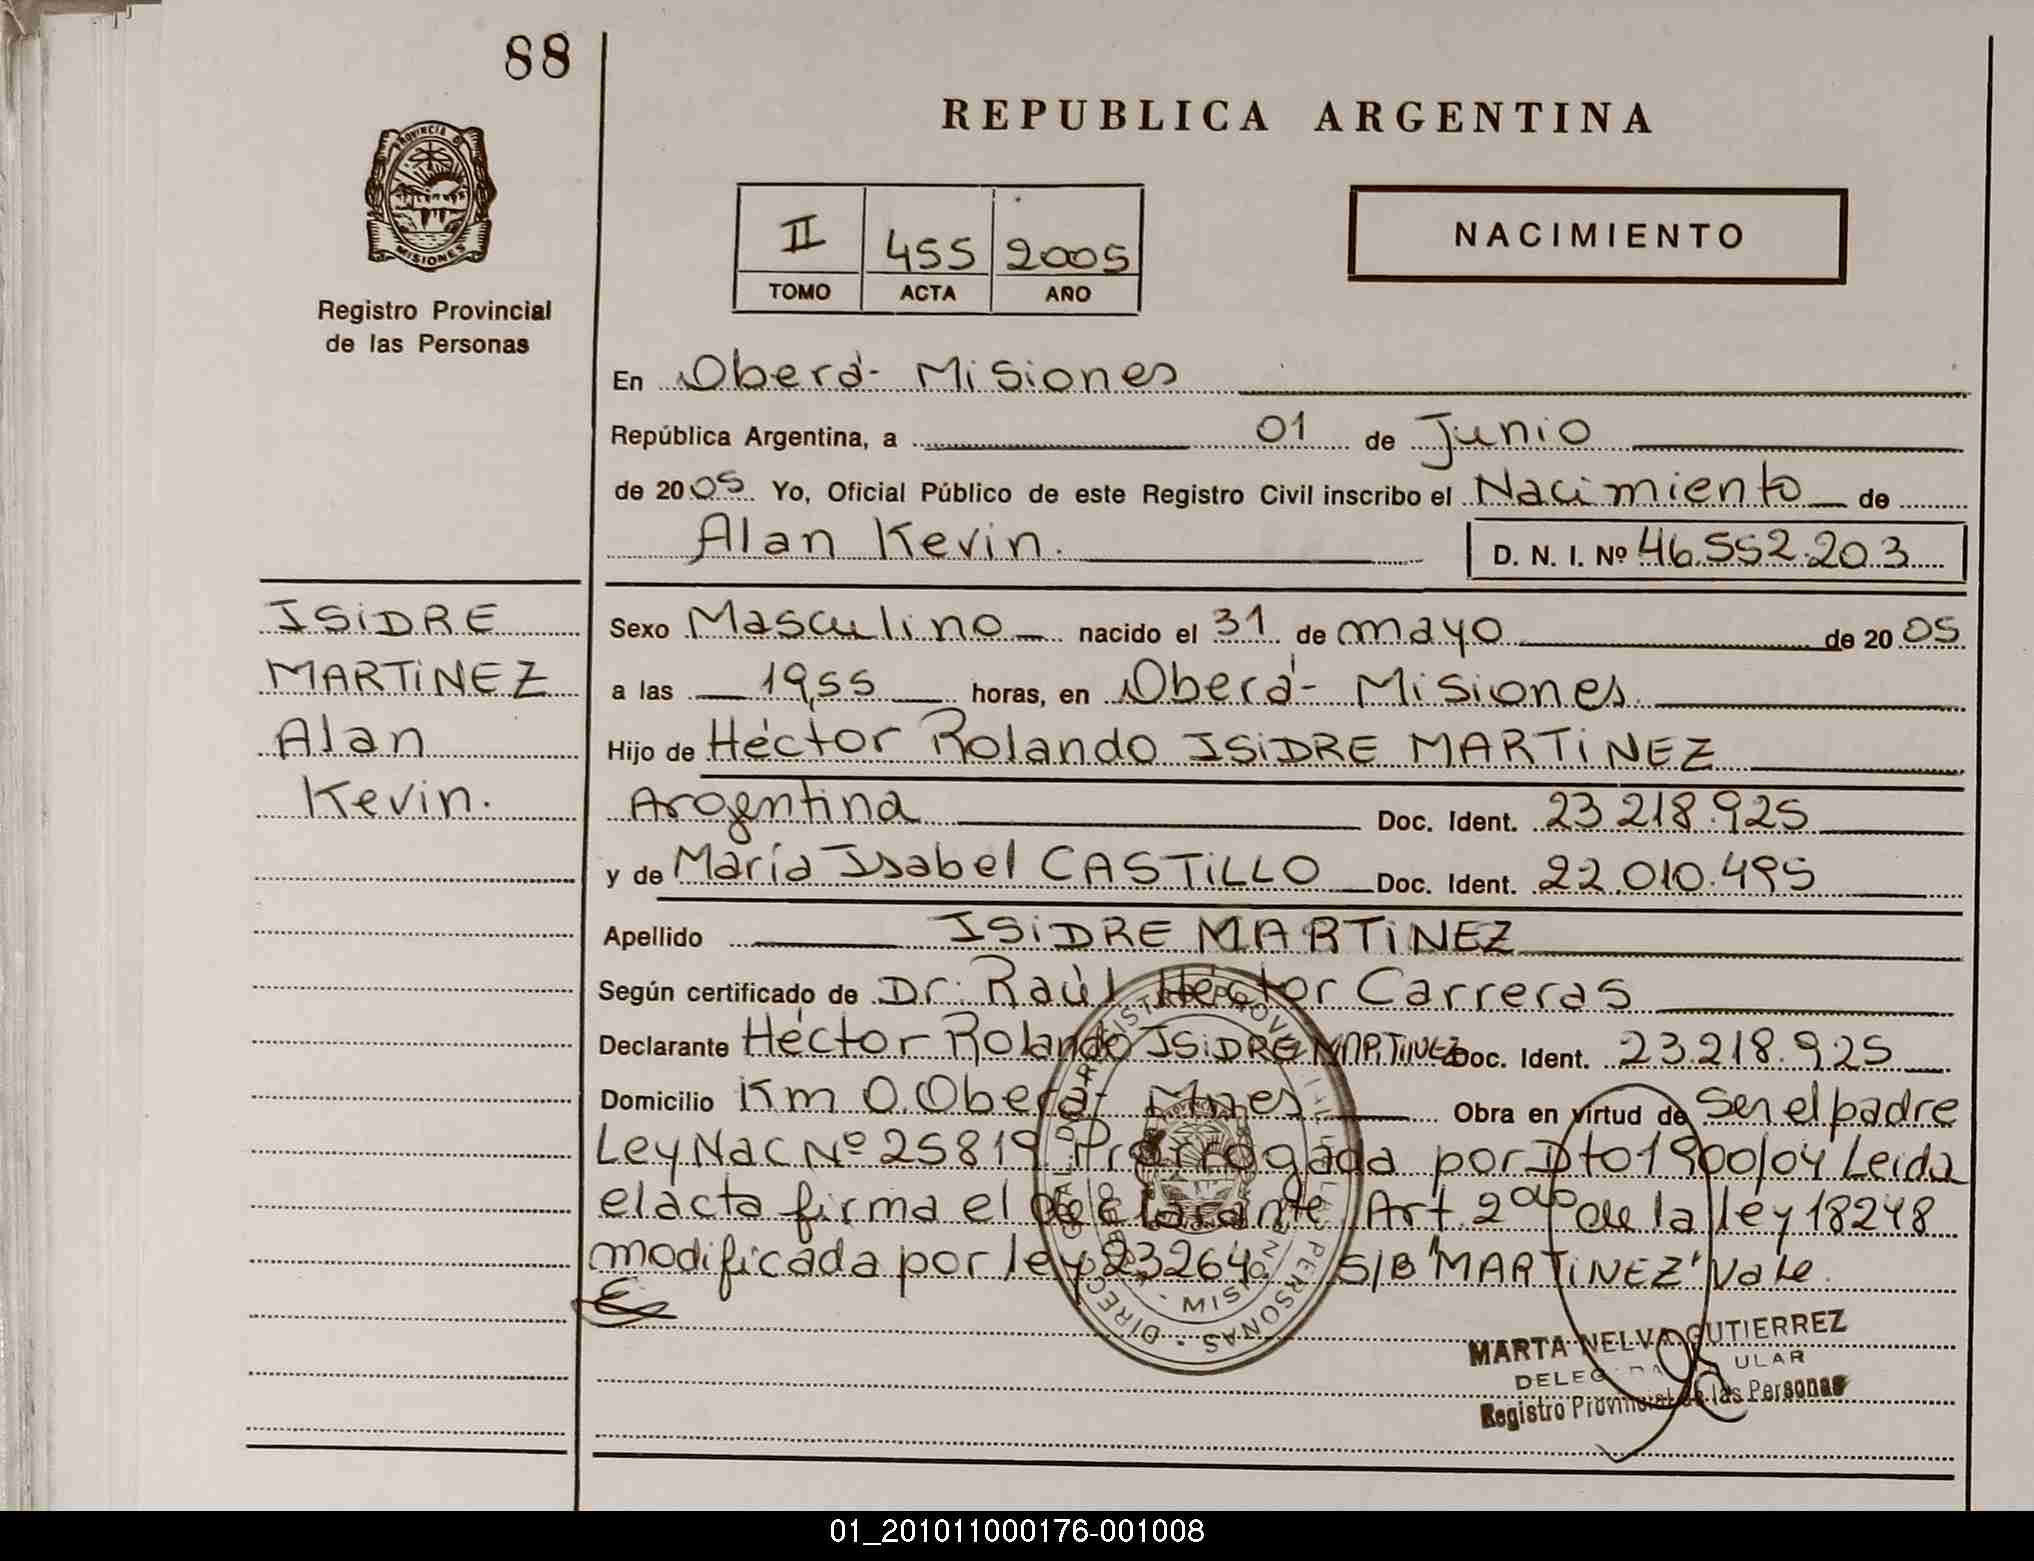 88
PROVINCIA DE
MISIONES
Registro Provincial
de las Personas
REPUBLICA ARGENTINA
II 455 2005
TOMO ACTA AÑO
NACIMIENTO
En Oberá - Misiones
República Argentina, a 01 de Junio
de 2005 Yo, Oficial Público de este Registro Civil inscribo el Nacimiento de
Alan Kevin. D. N. I. Nº 46.552.203
ISiDRE
MARTiNEZ
Alan
Kevin.
Sexo Masculino nacido el 31 de mayo de 2005
a las 19,55 horas, en Oberá - Misiones.
Hijo de Héctor Rolando ISiDRE MARTiNEZ
Argentina Doc. Ident. 23.218.925
y de María Isabel CASTiLLO Doc. Ident. 22.010.495
Apellido ISiDRE MARTiNEZ
Según certificado de Dr. Raúl Héctor Carreras
Declarante Héctor Rolando ISiDRE MARTiNEZ Doc. Ident. 23.218.925
Domicilio Km 0. Oberá - Mnes Obra en virtud de Ser el padre
Ley Nac Nº 25819 Prorrogada por Dto 1900/04 Leida
el acta firma el declarante Art. 2do de la ley 18248
modificada por ley 23264. S/B "MARTiNEZ" Vale.
MARTA NELVA GUTIERREZ
Registro Provincial de las Personas
01_201011000176-001008